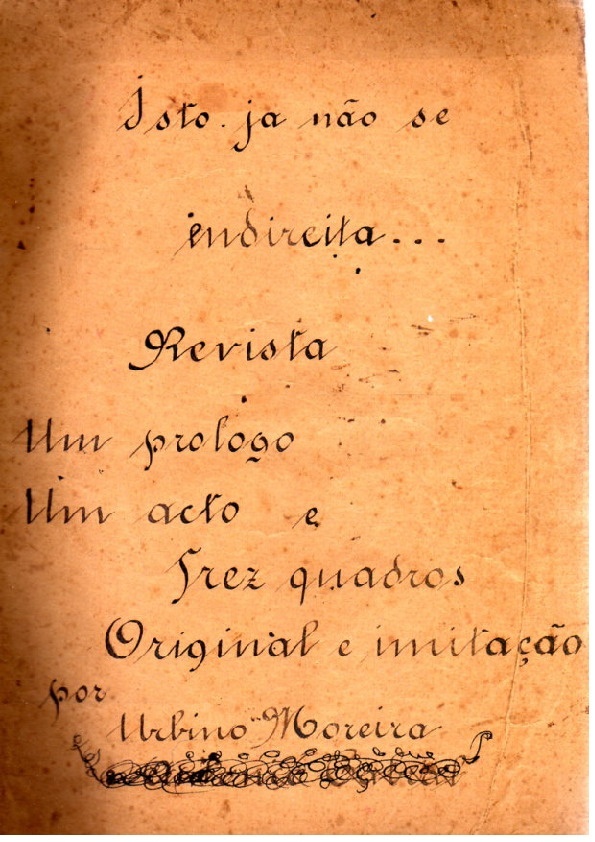 Isto. ja não se
endireita...
Revista
Um prologo
Um acto e
Trez quadros
Original e imitação
por
Urbino Moreira